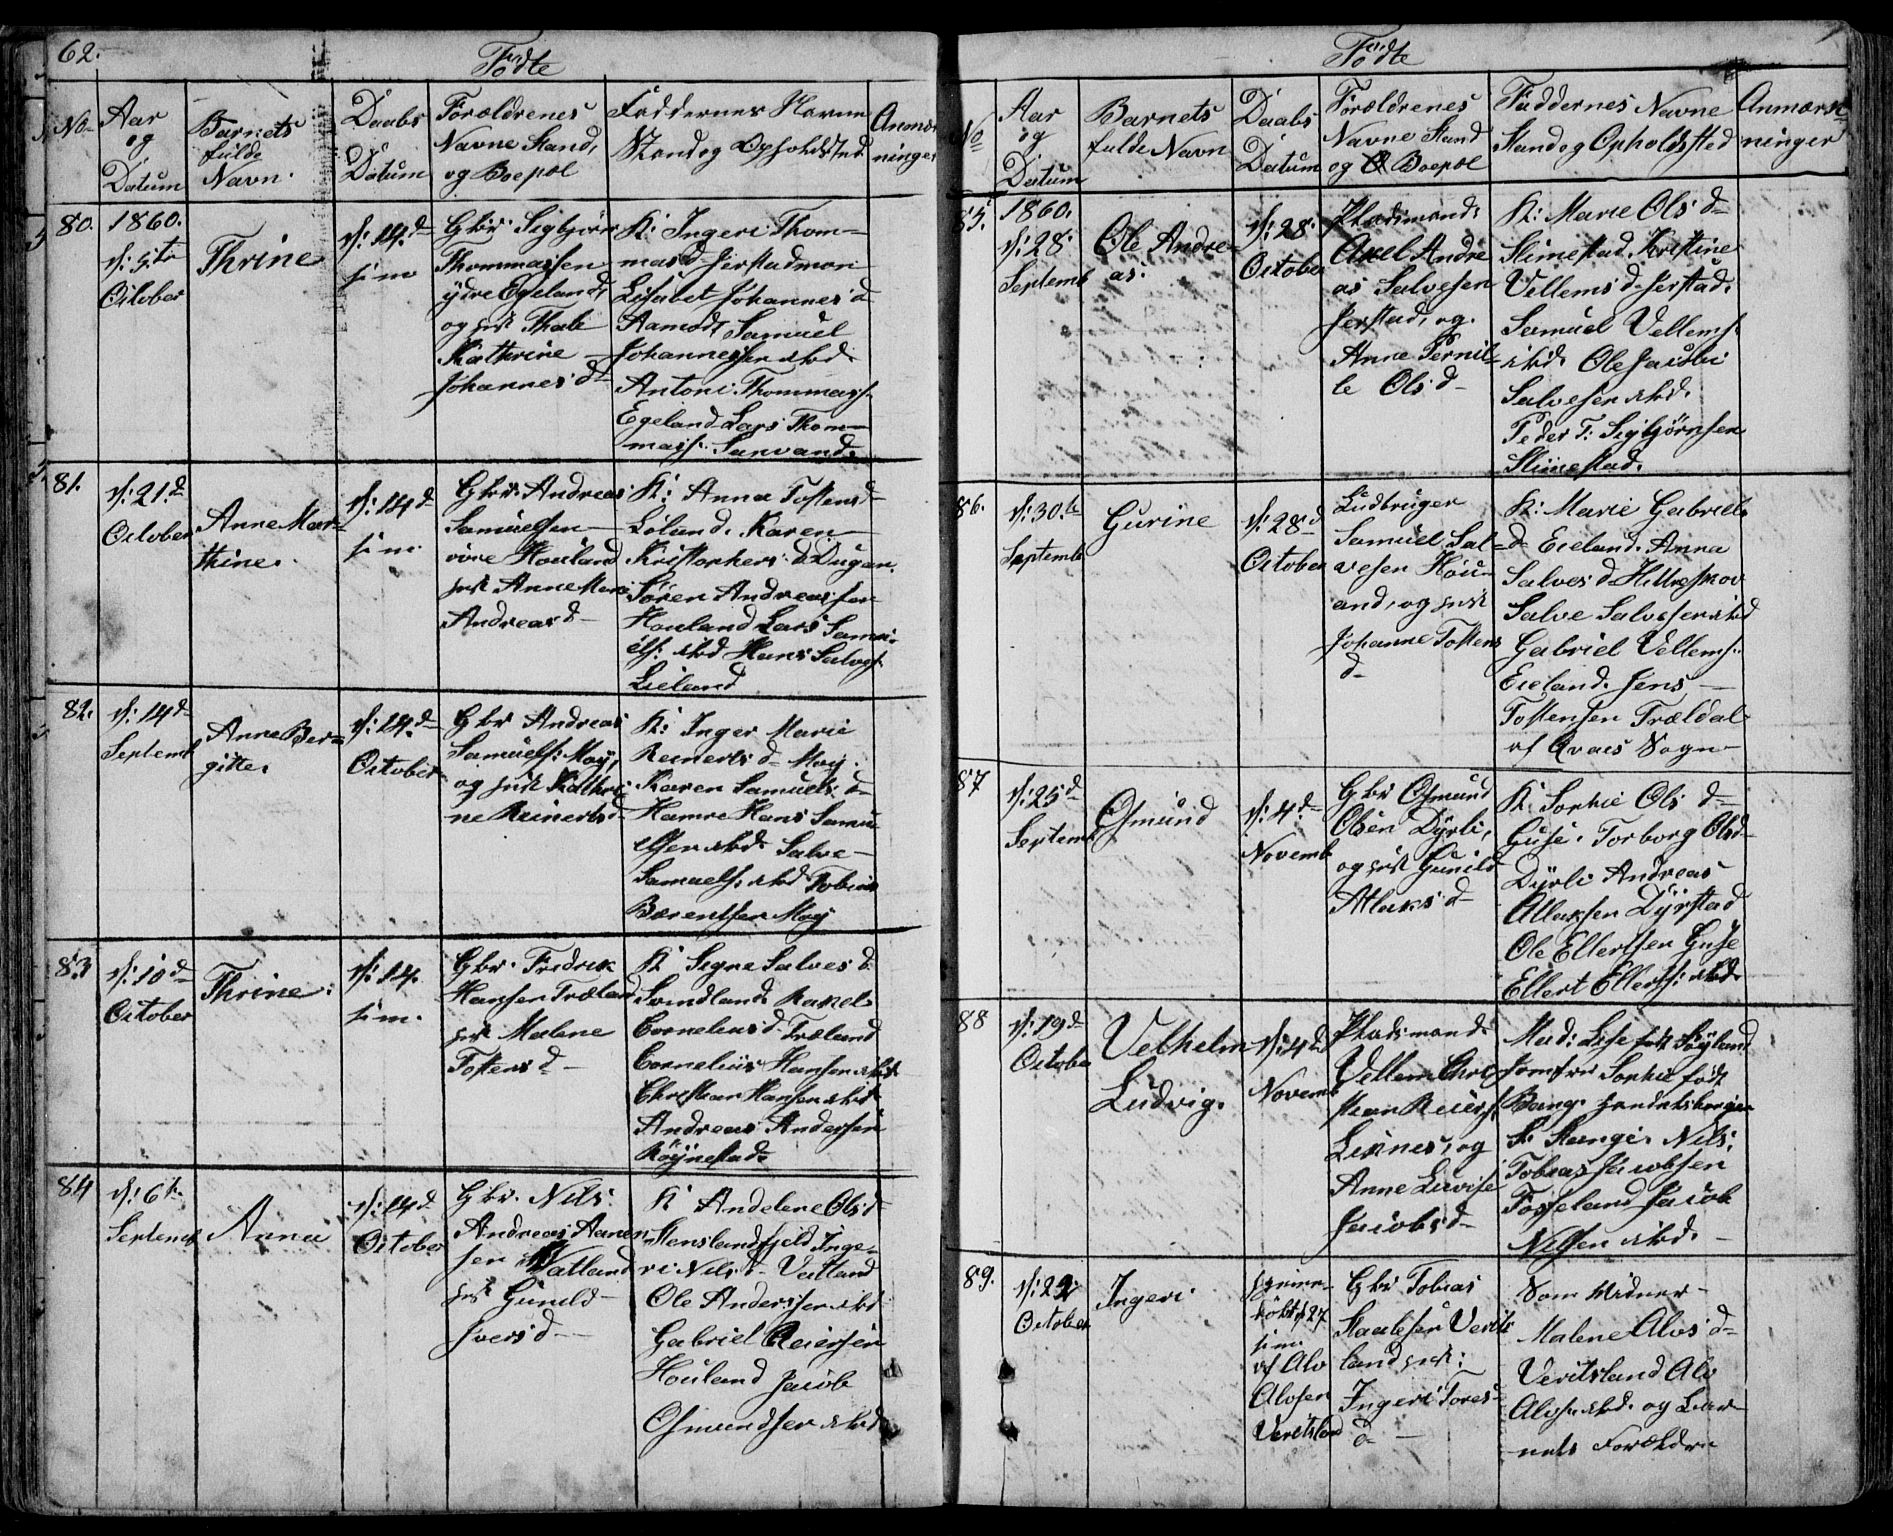 62.
Fødte
No
Aar
og
Datum
Barnets
fulde
Navn.
Daabs
Datum
Forældrenes
Navne Stand,
og Boepæl
Faddernes Navne
Stand og Opholdsted
Anmær
ninger
80.
1860.
d: 5te
October
Thrine
d: 14d
s: m
Gbr. Sigbjørn
Thommassen
ydre Egeland,
og hust Thale
Kathrine
Johannes d
K: Ingeri Thom-
mas d Jerstadmon
Lisabet Johannes d
Aamodt Samuel
Johannessen ibd.
Antoni Thommass.
Egeland Lars Thom-
mass: Sarvand.
81.
d: 21d
October
Anne Mar-
thine.
d: 14d
s: m.
Gbr. Andreas
Samuelsen
øvre Houland
hust Anne Marie
Andreas d
K: Anna Tostens d
Lolund. Karen
Kristophers d Dugan.
Søren Andreassen
Houland Lars Samu-
els: ibd Hans Salves.
Lieland
82.
d: 14d
Septemb
Anne Ber-
gitte.
d: 14d
October
Gbr Andreas
Samuels: Moy,
og hust Kathri-
ne Reinerts d
K: Inger Marie
Reinerts d Moy.
Karen Samuels d
Hamre Hans Samu-
elsen ibd. Salve
Samuels. ibd Tobias
Bærentsen Moy
83
d: 10d
October
Thrine.
d: 14.
s: m.
Gbr. Fredrik
Hansen Træland
hust Malene
Tostens d
K Segne Salves d
Svindland. Rakel
Cornelius d. Træland
Cornelius Hansen ibd
Christian Hansen ibd
Andreas Andersen
Røynestad.
84
d: 6t.
Septemb
Anna
d: 14d
October
Gbr. Nils
Andreas Aanen-
sen Vatland
hust Guneld
Ivers d
K Andelene Ols d
Stenslandfjeld Inge-
ri Nils d Vatland
Ole Anderssen ibd
Gabriel Reiersen
Houland Jacob
Osmundsen ibd
Fødte
No
Aar
og
Datum
Barnets
fulde Navn
Daabs
Datum
Forældrenes
Navne Stand
og Boepæl
Faddernes Navne
Stand og Opholdsted
Anmærk-
ninger
85.
1860.
d: 28.
Septemb
Ole Andre-
as.
d: 28.
October
Pladsmand.
Axel Andre
as Salvesen
Jerstad, og
Anne Pernil-
le Ols d
K: Marie Ols d
Slimestad. Kristine
Vellems d Jerstad.
Samuel Vellems.
ibd. Ole Jacobi
Salvesen ibd.
Peder T: Sigbjørnsen
Slimestad.
86.
d: 30te
Septemb
Gurine
d: 28d
October
Ludbruger
Samuel Sal-
vesen Høu-
and, og hust
Johanne Tostens
d
K: Marie Gabriels
d Eieland. Anna
Salves d Hilleskov
Salve Salvesen ibd
Gabriel Vellems.
Eieland. Jens
Tostensen Trældal
af Qvaes Sogn
87
d: 25d
Septemb
Osmund
d: 4d
Novemb
Gbr Osmund
Olsen Dyrli,
og hust Gunild
Atlaks d
K: Sophie Ols d
Guse. Torborg Ols d
Dyrli Andreas
Atlaksen Dyrstad
Ole Ellertsen Guse
Ellert Ellerts: ibd.
88
d: 19d
October
Velhelm
Ludvig.
d: 4d
Novemb
Pladsmand.
Vellem Chri-
stian Reiers.
Liknes, og
Anne Lovise
Jacobs d
Mad: Lise født Søyland
Jomfru Sophie født
Bang. Handelsborger
S: Stange. Nils
Tobias Jacobsen
Fosseland Jacob
Nilsen ibd.
89.
d: 22
October
Ingeri
hjemme-
døbt d 27
s: m.
af Alv
Alvsen
Veritsland
Gbr Tobias
Staalesen Verits
land hust:
Ingeri Tores
d
Som Vidner
Malene Alvs d
Veritsland Alv
Alvs. ibd. og Bar-
nets Forældre